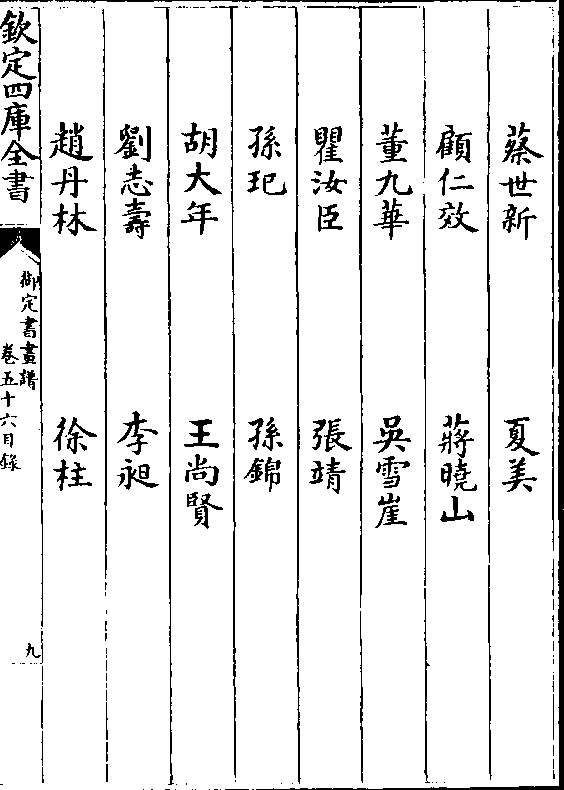 蔡世新　夏美
顧仁效　蔣曉山
董九華　吳雪崖
瞿汝臣　張靖
孫玘　孫錦
胡大年　王尚賢
劉志壽　李昶
趙丹林　徐柱
欽定四庫全書
御定書畫譜
卷五十六目錄
九